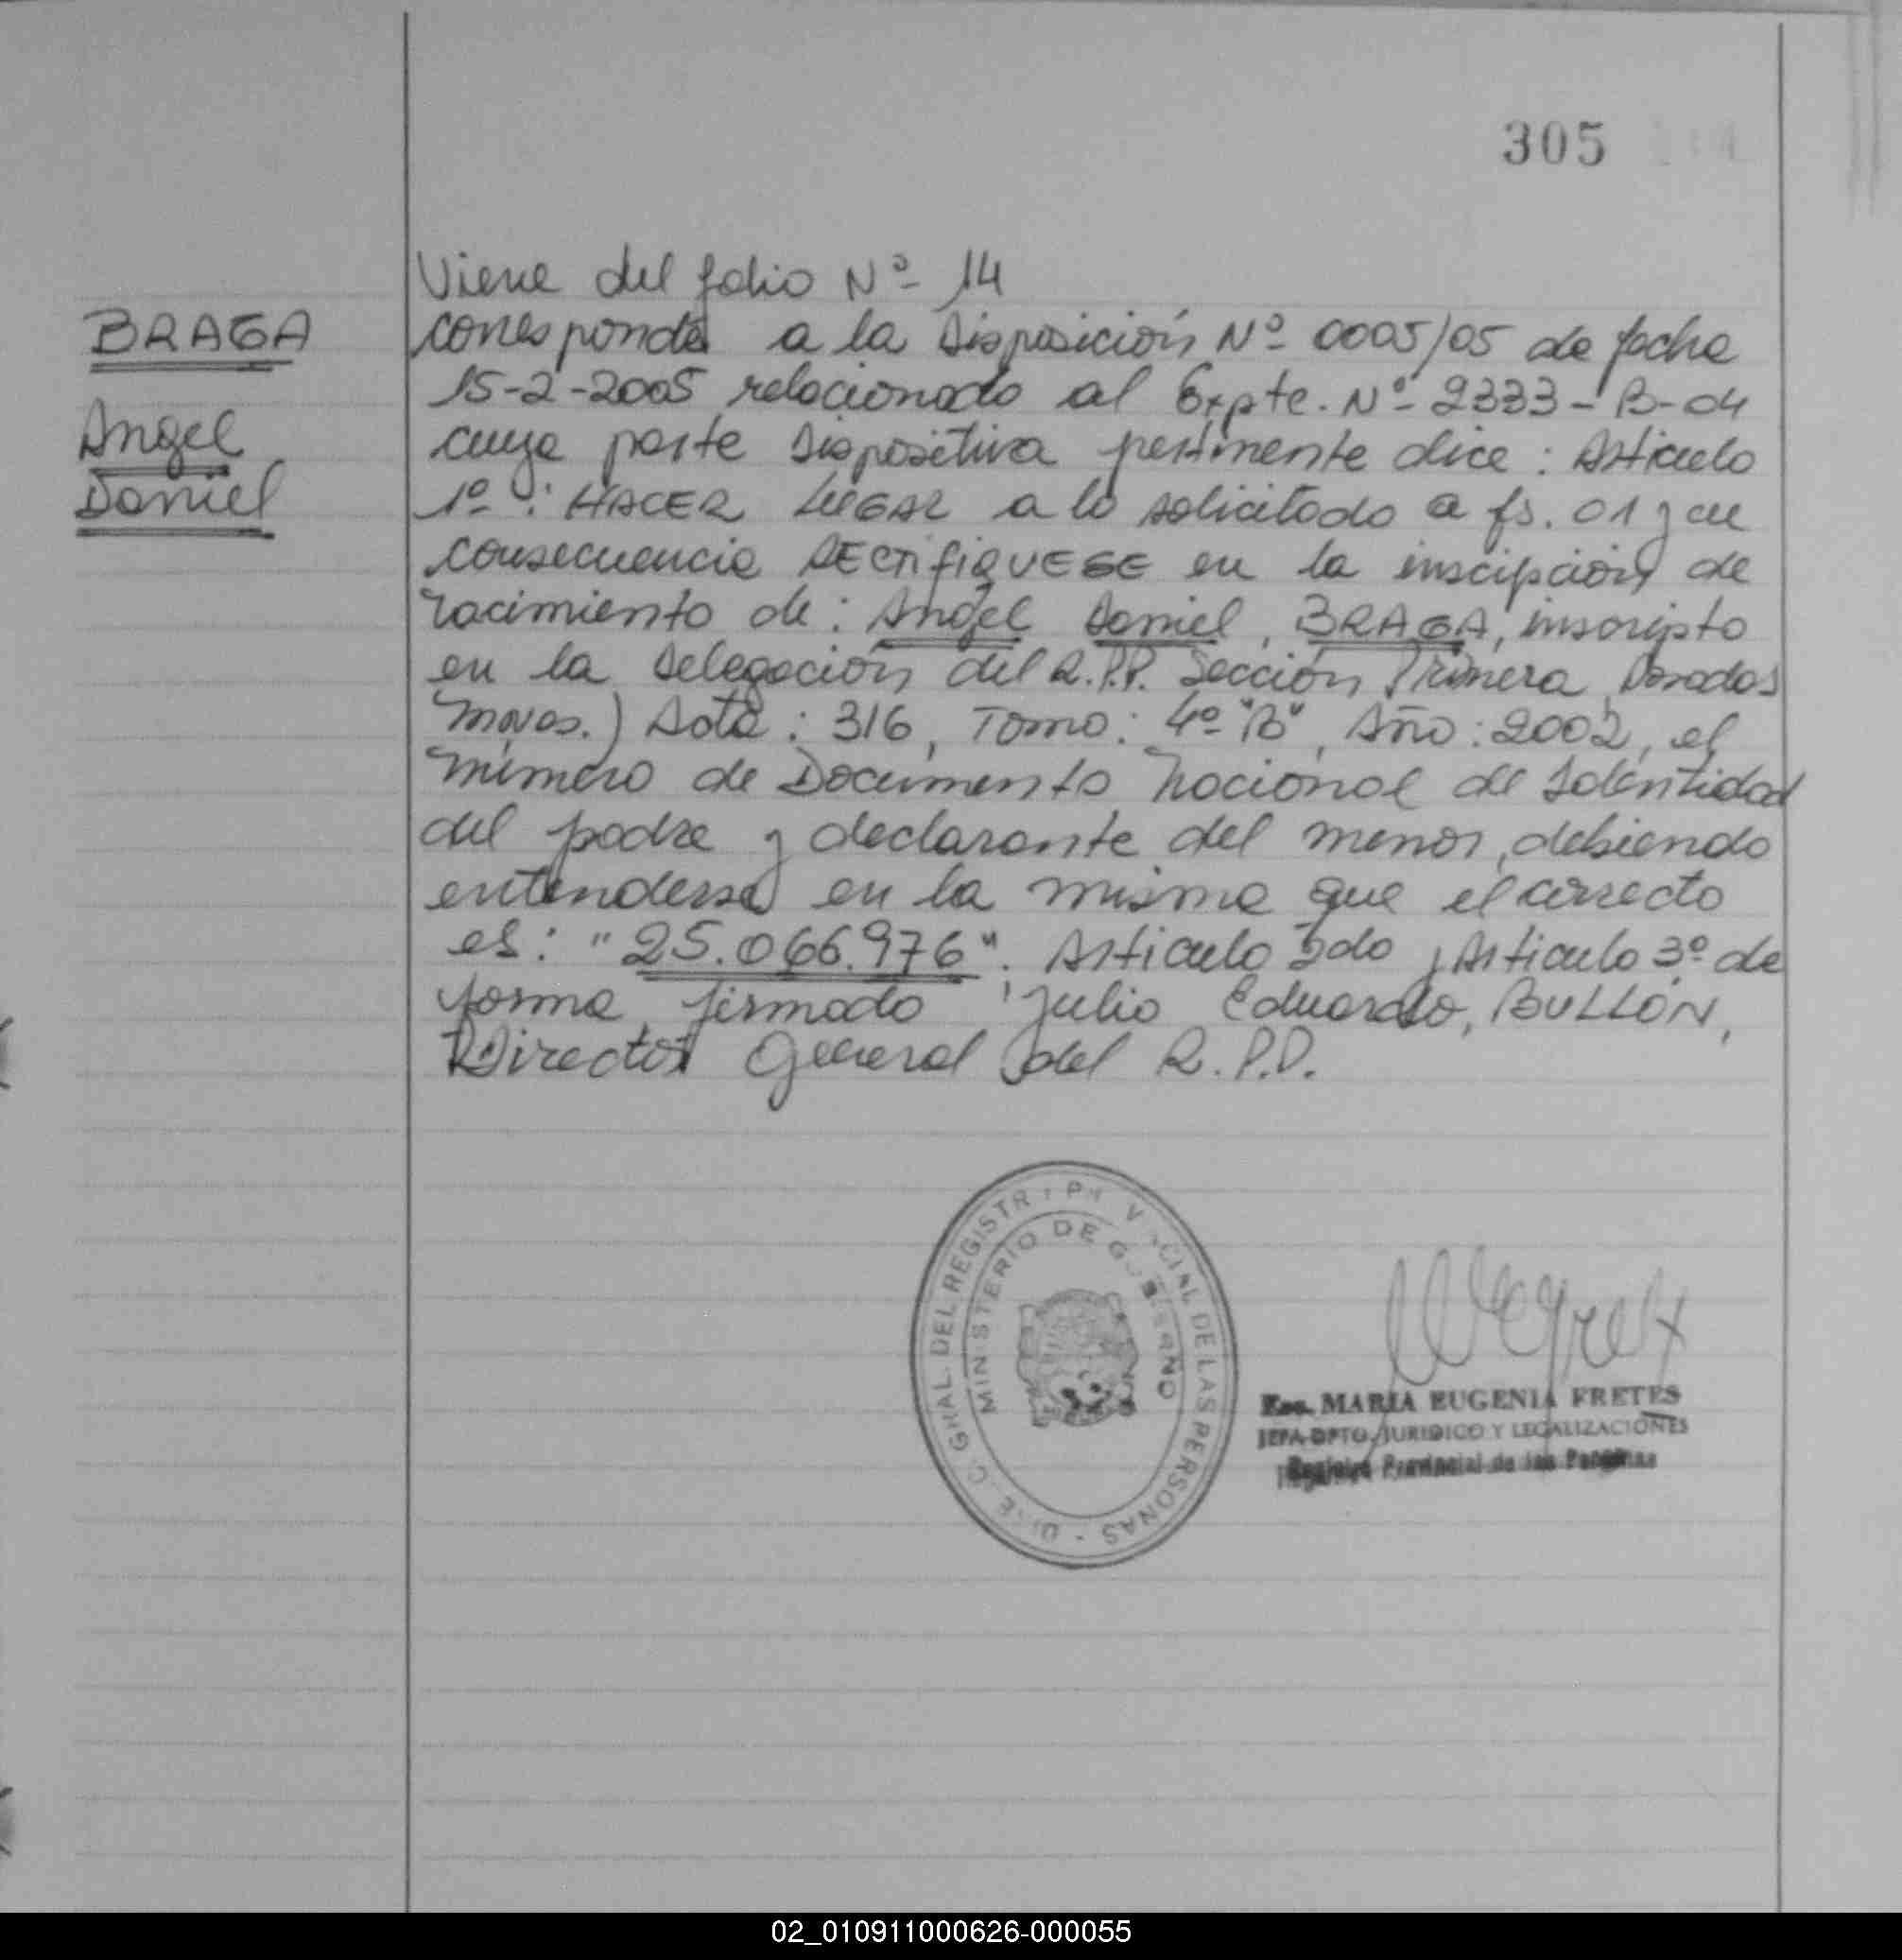 305
BRAGA
Angel
Daniel
Viene del folio Nº 14
corresponde a la Disposición Nº 0005/05 de fecha
15-2-2005 relacionado al Expte. Nº 2333-B-04
cuya parte Dispositiva pertinente dice: Articulo
1º: HACER LUGAR a lo solicitado a fs. 01 y en
consecuencia RECTIFIQUESE en la inscipción de
nacimiento de: Angel Daniel, BRAGA, inscripto
en la Delegación del R.P.P. Sección Primera Posadas
Mnes.) Acta: 316, Tomo: 4º "B", Año: 2002, el
número de Documento Nacional de Identidad
del padre y declarante del menor, debiendo
entenderse en la misma que el correcto
es: "25.066.976". Articulo 2do y Articulo 3º de
forma firmado Julio Eduardo, BULLÓN,
Director General del R.P.P.
GRAL. DEL REGISTRO PROVINCIAL DE LAS PERSONAS
MINISTERIO DE GOBIERNO
Esc. MARIA EUGENIA FRETES
JEFA DPTO. JURIDICO Y LEGALIZACIONES
Registro Provincial de las Personas
02_010911000626-000055